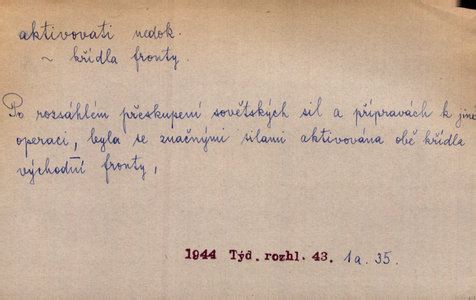 aktivovati nedok.
~ křídla fronty.
Po rozsáhlém přeskupení sovětských sil a přípravách k jiné
operaci, byla se značnými silami aktivována obě křídla
východní fronty,
1944 Týd. rozhl. 43. 1a. 35.